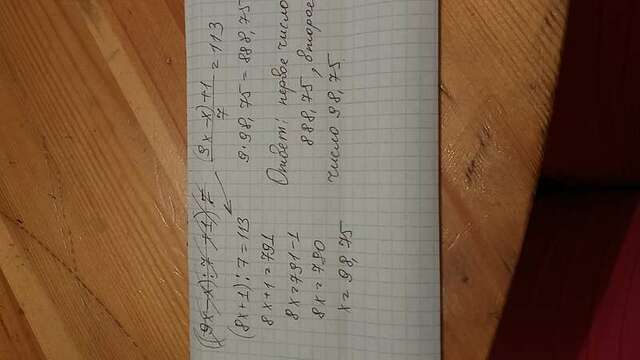 ((9x-x):7 +1) 7
(8x+1):7=113
8x+1=791
8x=791-1
8x=790
x=98,75
(9x-x)+1
7
=113
9·98,75=888,75
Ответ: первое число
888,75, второе
число 98,75